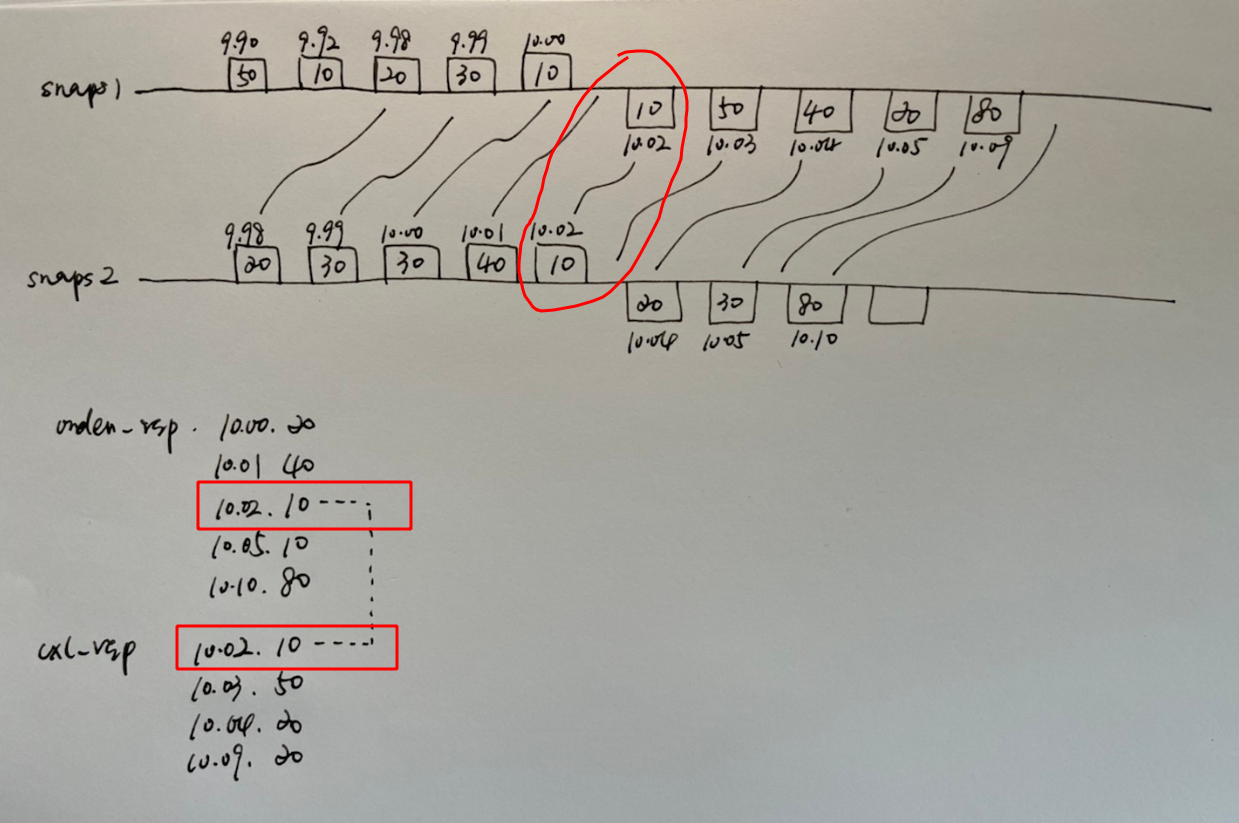 9.90 9.92 9.98 9.99 10.00
snaps1 50 10 20 30 10
10 50 40 20 80
10.02 10.03 10.04 10.05 10.09
9.98 9.99 10.00 10.01 10.02
snaps2 20 30 30 40 10
20 30 80
10.04 10.05 10.10
order_rsp. 10.00. 20
10.01 40
10.02. 10
10.05. 10
10.10. 80
cxl_rsp 10.02. 10
10.03. 50
10.04. 20
10.09. 20